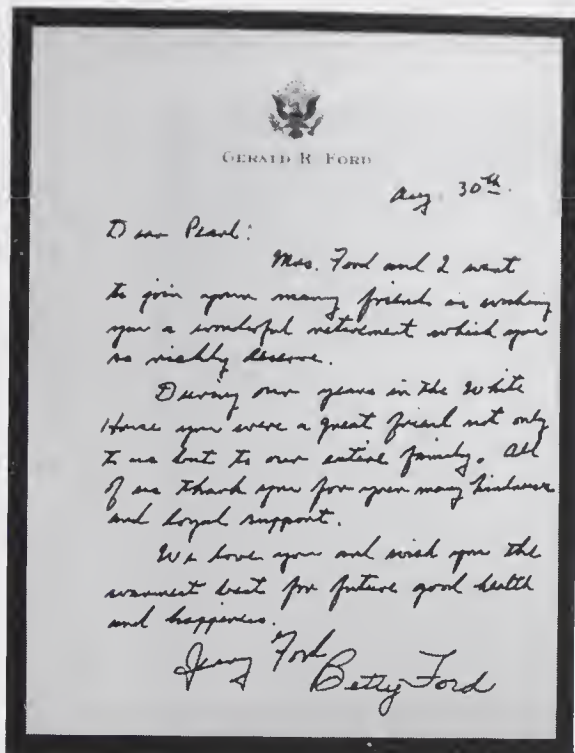 GERALD R. FORD
Aug. 30th.
Dear Pearl:
Mrs. Ford and I want
to join your many friends in wishing
you a wonderful retirement which you
so richly deserve.
During our years in the White
House you were a great friend not only
to us but to our entire family. All
of us thank you for your many kindnesses
and loyal support.
We love you and wish you the
warmest best for future good health
and happiness.
Jerry Ford
Betty Ford